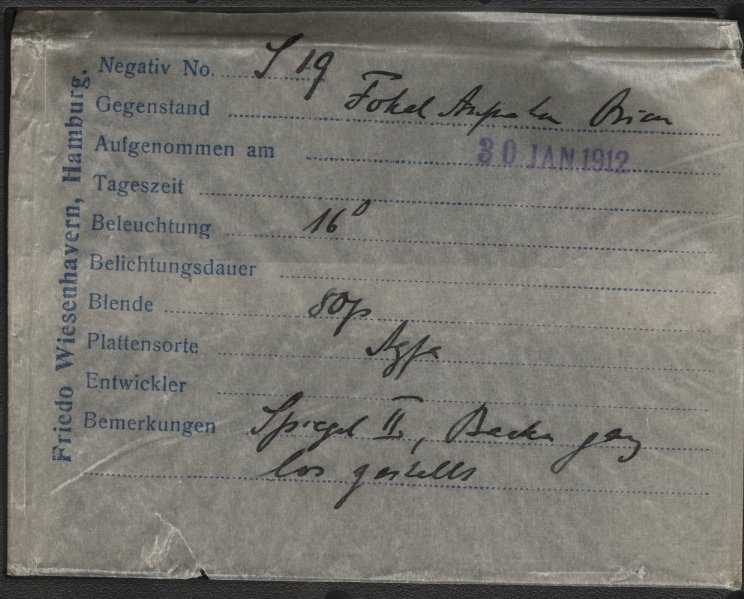 Friedo Wiesenhavern, Hamburg.
Negativ No. S 19
Gegenstand Fokal Aufnahm Orion
Aufgenommen am 30 JAN 1912
Tageszeit
Beleuchtung 16°
Belichtungsdauer
Blende
Plattensorte Agfa
Entwickler
Bemerkungen Spiegel II, Backen ganz
los gestellt